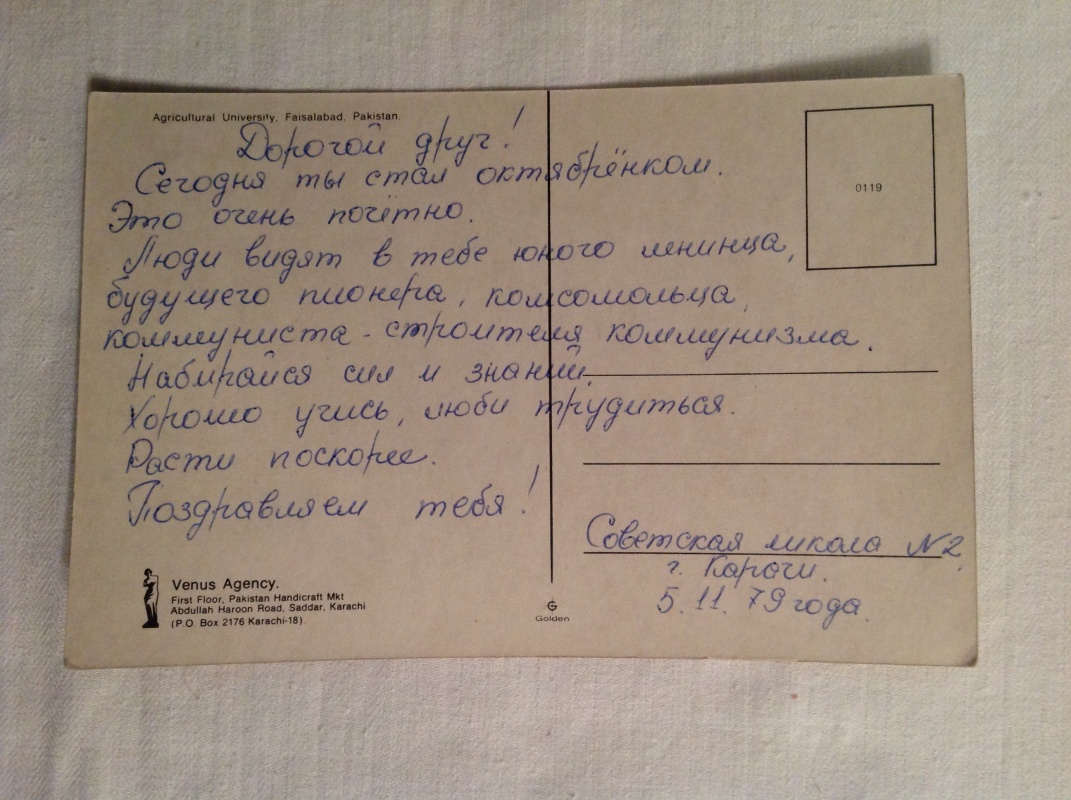 Agricultural University, Faisalabad, Pakistan.
Дорогой друг!
Сегодня ты стал октябрёнком.
Это очень почётно.
Люди видят в тебе юного ленинца,
будущего пионера, комсомольца,
коммуниста - строителя коммунизма.
Набирайся сил и знаний.
Хорошо учись, люби трудиться.
Расти поскорее.
Поздравляем тебя!
0119
Советская школа N2,
г. Карачи.
5. 11. 79 года.
Venus Agency.
First Floor, Pakistan Handicraft Mkt
Abdullah Haroon Road, Saddar, Karachi
(P.O. Box 2176 Karachi-18).
G
Golden